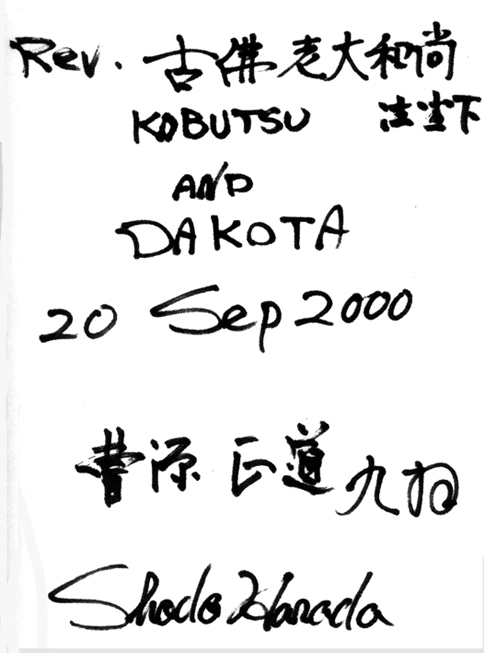 Rev. 古佛老大和尚
KOBUTSU 法堂下
AND
DAKOTA
20 Sep 2000
曹源 正道 九拜
Shodo Harada